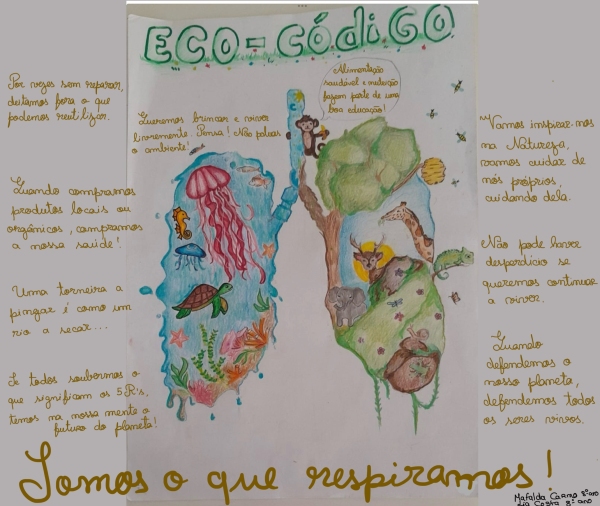 ECO-CÓdiGO
Alimentação
saudável e nutrição
fazem parte de uma
boa educação!
Queremos brincar e viver
livremente. Pensa! Não poluas
o ambiente!
Por vezes sem reparar,
deitamos fora o que
podemos reutilizar.
Quando compramos
produtos locais ou
orgânicos, compramos
a nossa saúde!
Uma torneira a
pingar é como um
rio a secar...
Se todos soubermos o
que significam os 5R's,
temos na nossa mente o
futuro do planeta!
Vamos inspirar-nos
na Natureza,
vamos cuidar de
nós próprios,
cuidando dela.
Não pode haver
desperdício se
queremos continuar
a viver.
Quando
defendemos o
nosso planeta,
defendemos todos
os seres vivos.
Somos o que respiramos!
Mafalda Carmo 8ºano
Lia Costa 8º ano